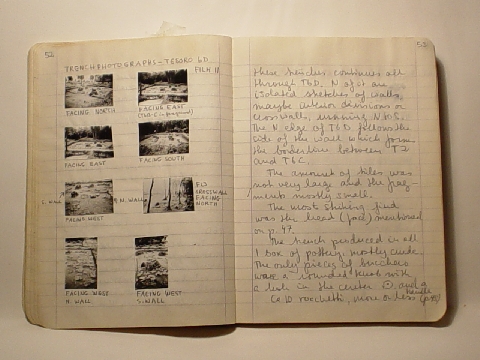 52
TRENCH PHOTOGRAPHS - TESORO 6D
FILM II
FACING NORTH
FACING EAST
FACING EAST
FACING SOUTH
FACING WEST
N. WALL
CROSSWALL
FACING
NORTH
FACING WEST
N. WALL
FACING WEST
S. WALL
53
these trenches continues all
through T6D. N of it an
isolated stretches of walls,
maybe interior divisions or
crosswalls, running N to S.
The N edge of T6D follows the
side of the wall which forms
the borderline between T2
and T6C.
The amount of tiles was
not very large and the frag-
ments mostly small.
The most striking find
was the head (foot) mentioned
on p. 47.
The trench produced in all
1 box of pottery, mostly crude.
The only pieces of bucchero
were a rounded knob with
a hole in the center and a
handle
Ca 10 rocchetti, more or less (p. 49)